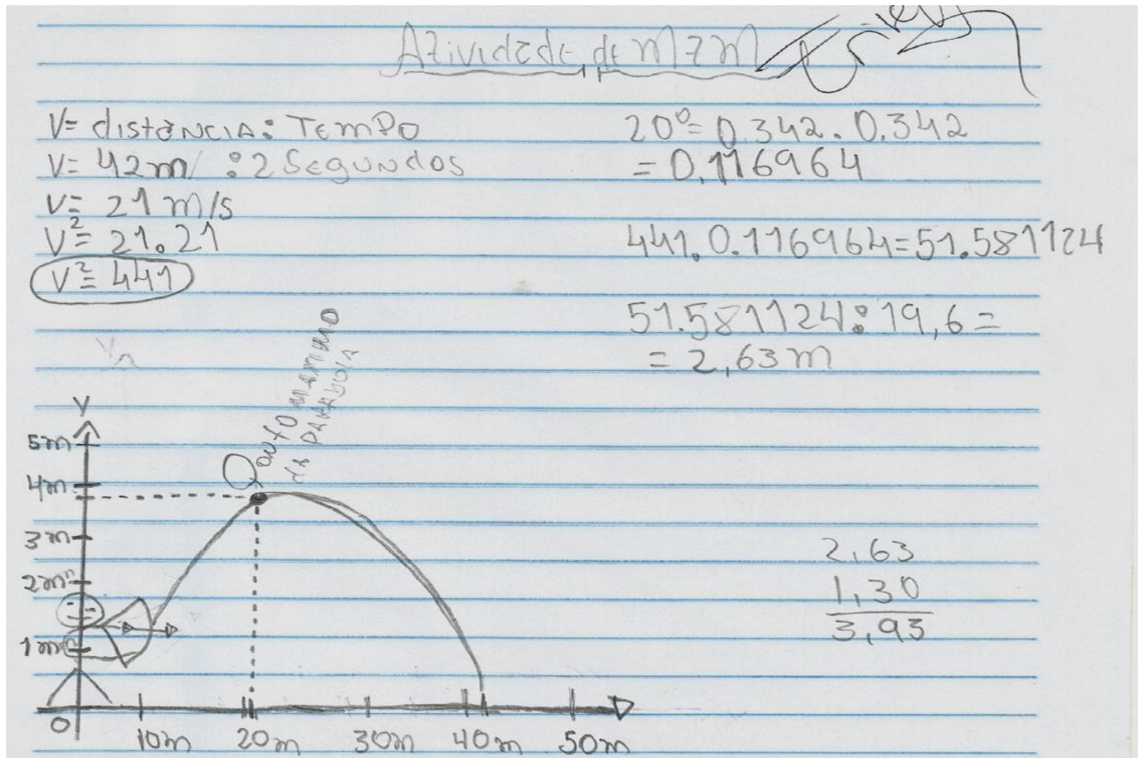 Atividade de M7M
V= distância: Tempo
V= 42m/ :2 Segundos
V= 21 m/s
V²= 21.21
V²= 441
20º= 0.342. 0.342
= 0,116964
441. 0.116964=51.581124
51.581124: 19,6=
= 2,63m
Ponto maximo
da parábola
Y
5m
4m
3m
2m
1m
0
10m
20m
30m
40m
50m
2,63
1,30
3,93